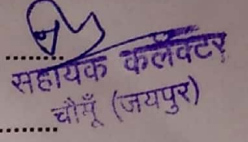 सहायक कलेक्टर
चौमूँ (जयपुर)